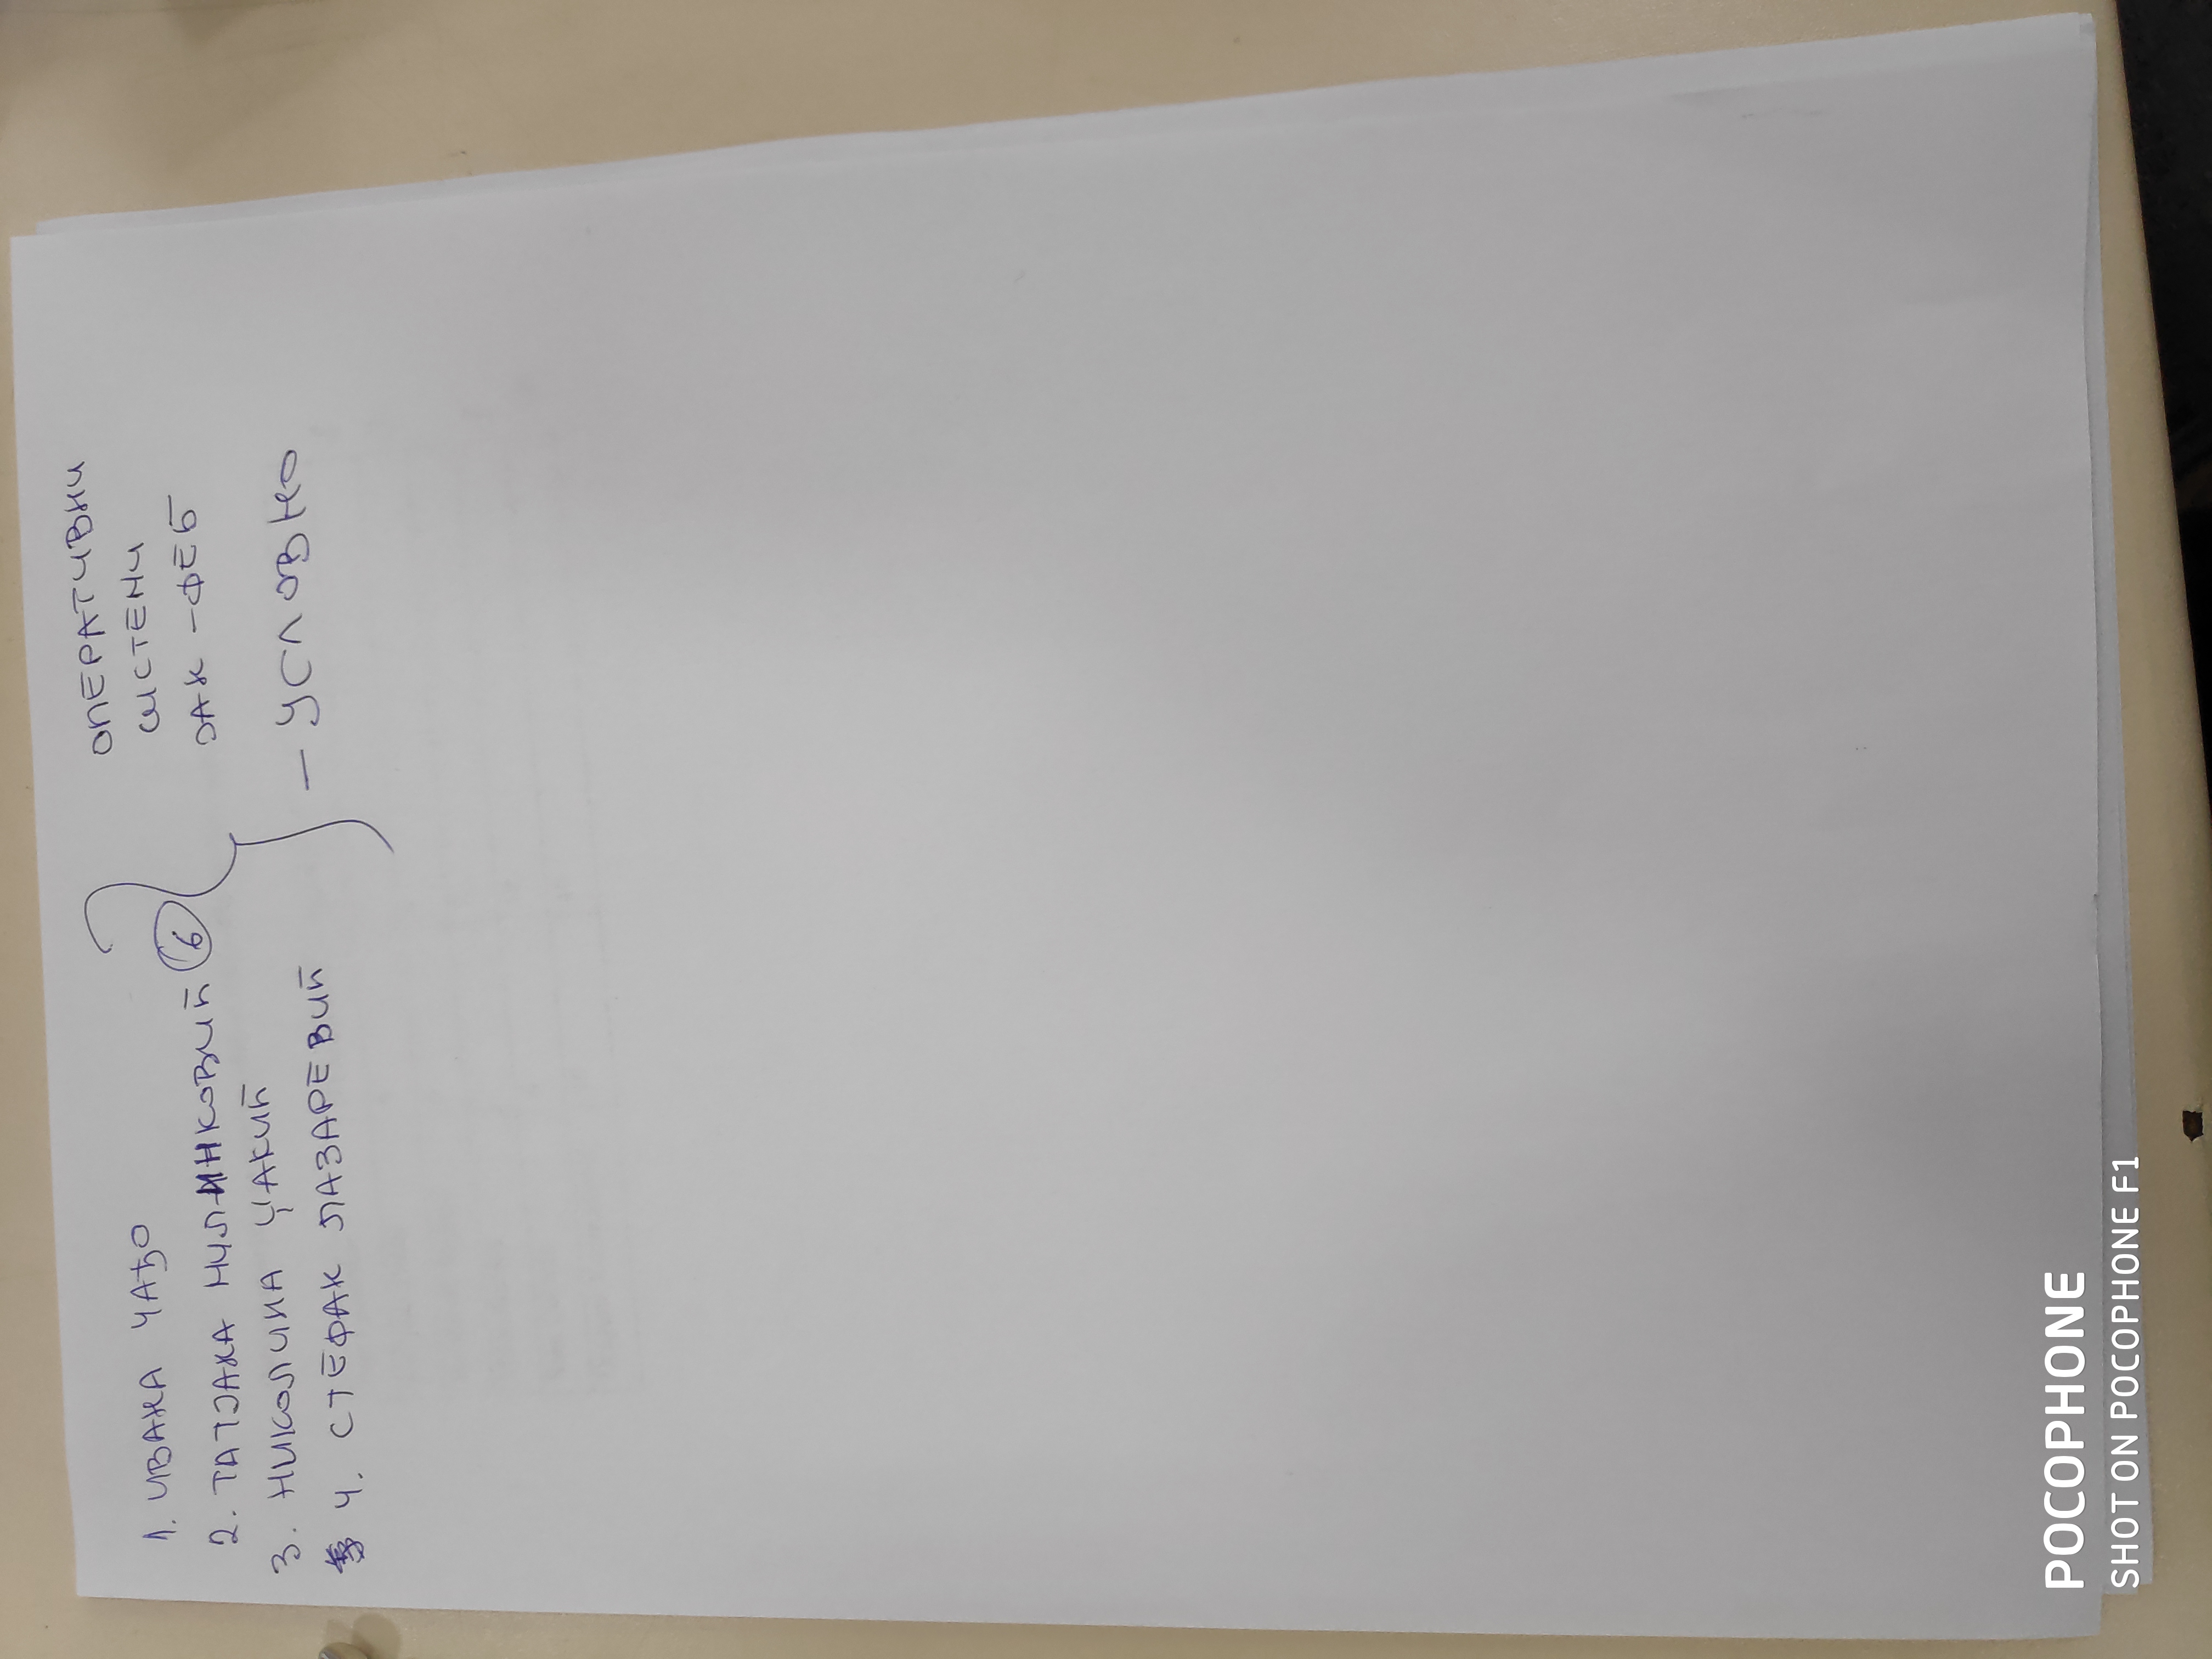 1. ИВАНА ЧАЂО
2. ТАТЈАНА МИЛИНКОВИЋ 6
3. НИКОЛИНА ЏАКИЋ
4. СТЕФАН ЛАЗАРЕВИЋ
ОПЕРАТИВНИ
СИСТЕМИ
ЈАН - ФЕБ
- УСЛОВНО
POCOPHONE
SHOT ON POCOPHONE F1